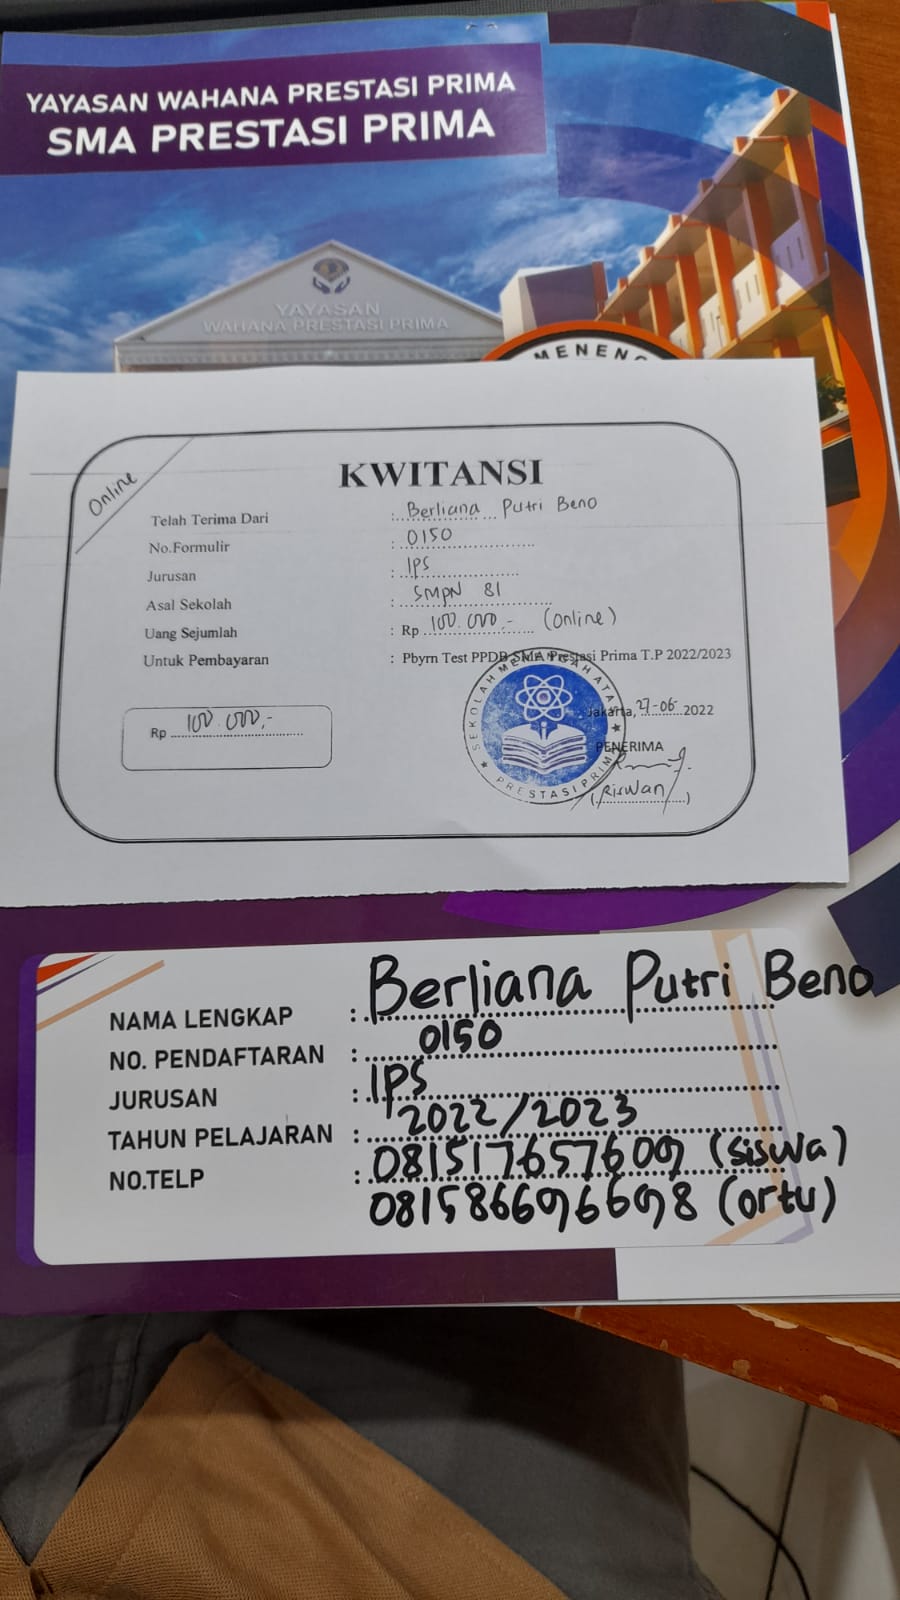 YAYASAN WAHANA PRESTASI PRIMA
SMA PRESTASI PRIMA
YAYASAN
WAHANA PRESTASI PRIMA
MENENG
Online
KWITANSI
Telah Terima Dari : Berliana Putri Beno
No.Formulir : 0150
Jurusan : IPS
Asal Sekolah : SMPN 81
Uang Sejumlah : Rp 100.000,- (Online)
Untuk Pembayaran : Pbyrn Test PPDB SMA Prestasi Prima T.P 2022/2023
Rp 100.000,-
SEKOLAH MENENGAH ATAS
PRESTASI PRIMA
Jakarta, 27-06-2022
PENERIMA
(Riswan)
NAMA LENGKAP : Berliana Putri Beno
NO. PENDAFTARAN : 0150
JURUSAN : IPS
TAHUN PELAJARAN : 2022/2023
NO.TELP : 081517657609 (siswa)
081586696698 (ortu)